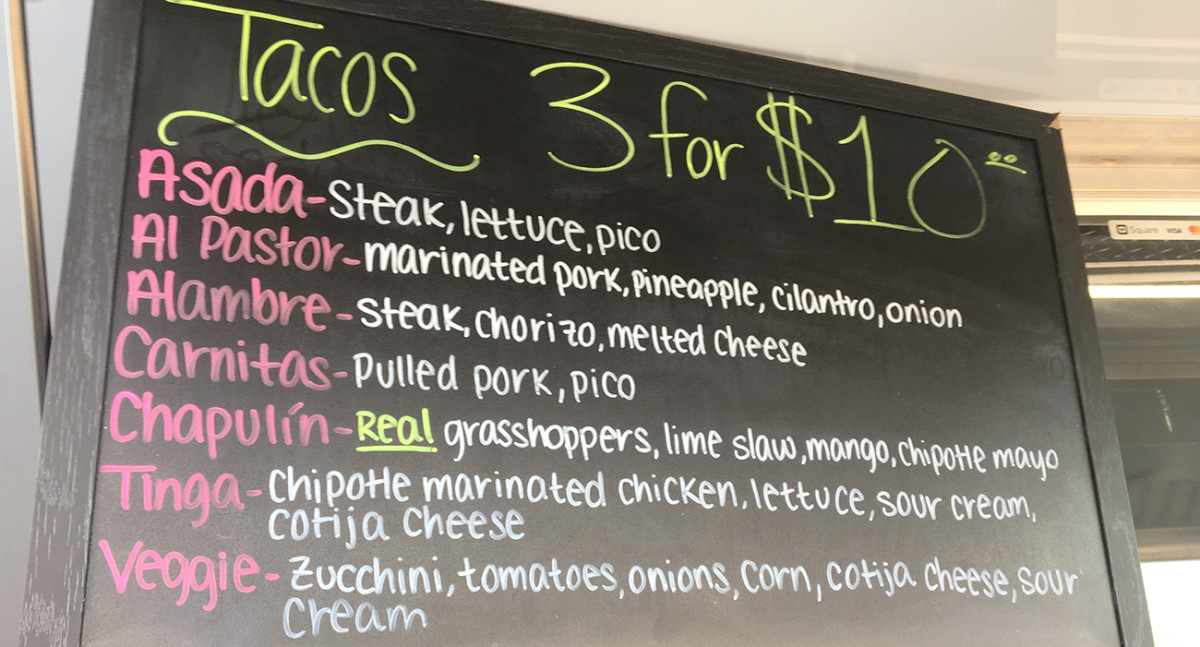 Tacos 3 for $10.00
Asada - steak, lettuce, pico
Al Pastor - marinated pork, pineapple, cilantro, onion
Alambre - steak, chorizo, melted cheese
Carnitas - Pulled pork, pico
Chapulín - Real grasshoppers, lime slaw, mango, chipotle mayo
Tinga - Chipotle marinated chicken, lettuce, sour cream,
cotija cheese
Veggie - zucchini, tomatoes, onions, corn, cotija cheese, sour
cream
Square VISA